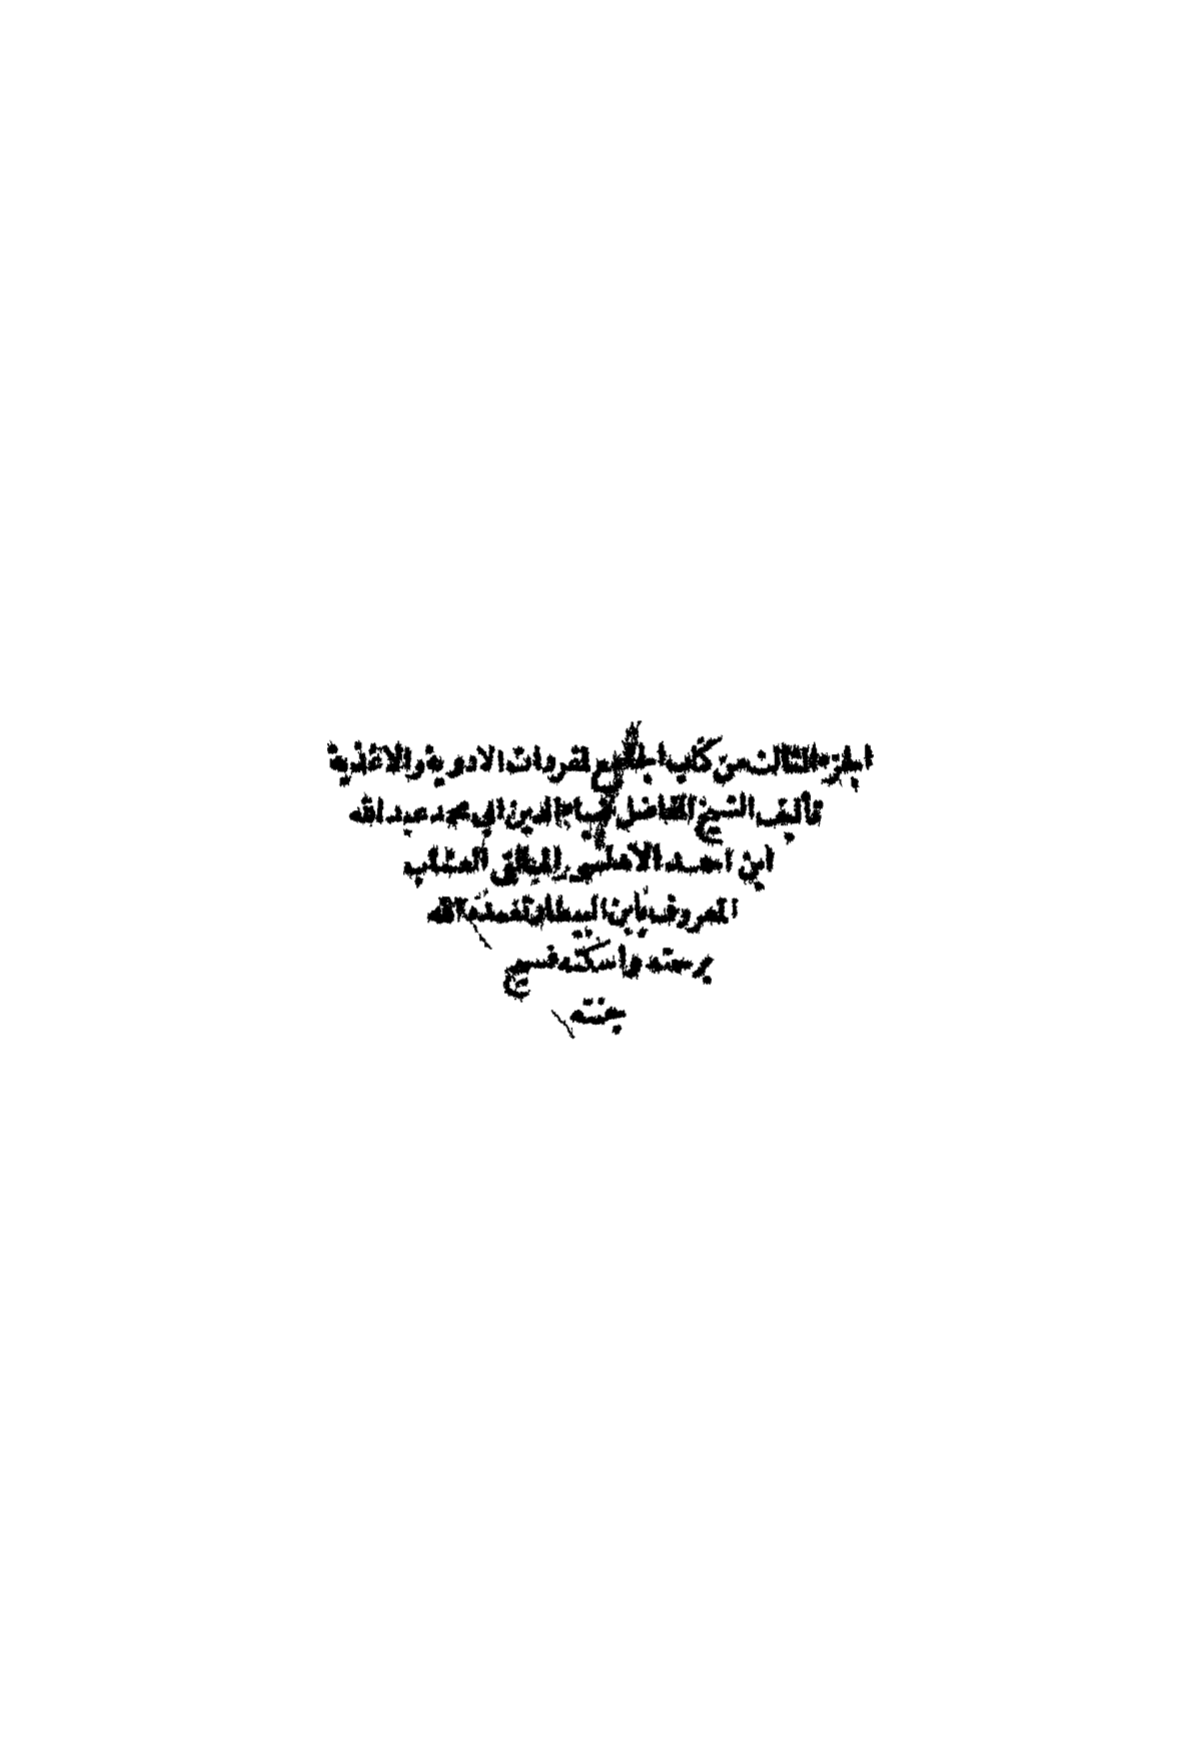 الجزء الثالث من كتاب الجامع لمفردات الادوية والاغذية
تأليف الشيخ الفاضل ضياء الدين ابي محمد عبد الله
ابن احمد الاندلسي المالقي العشاب
المعروف بابن البيطار تغمده الله
برحمته وأسكنه فسيح
جنته